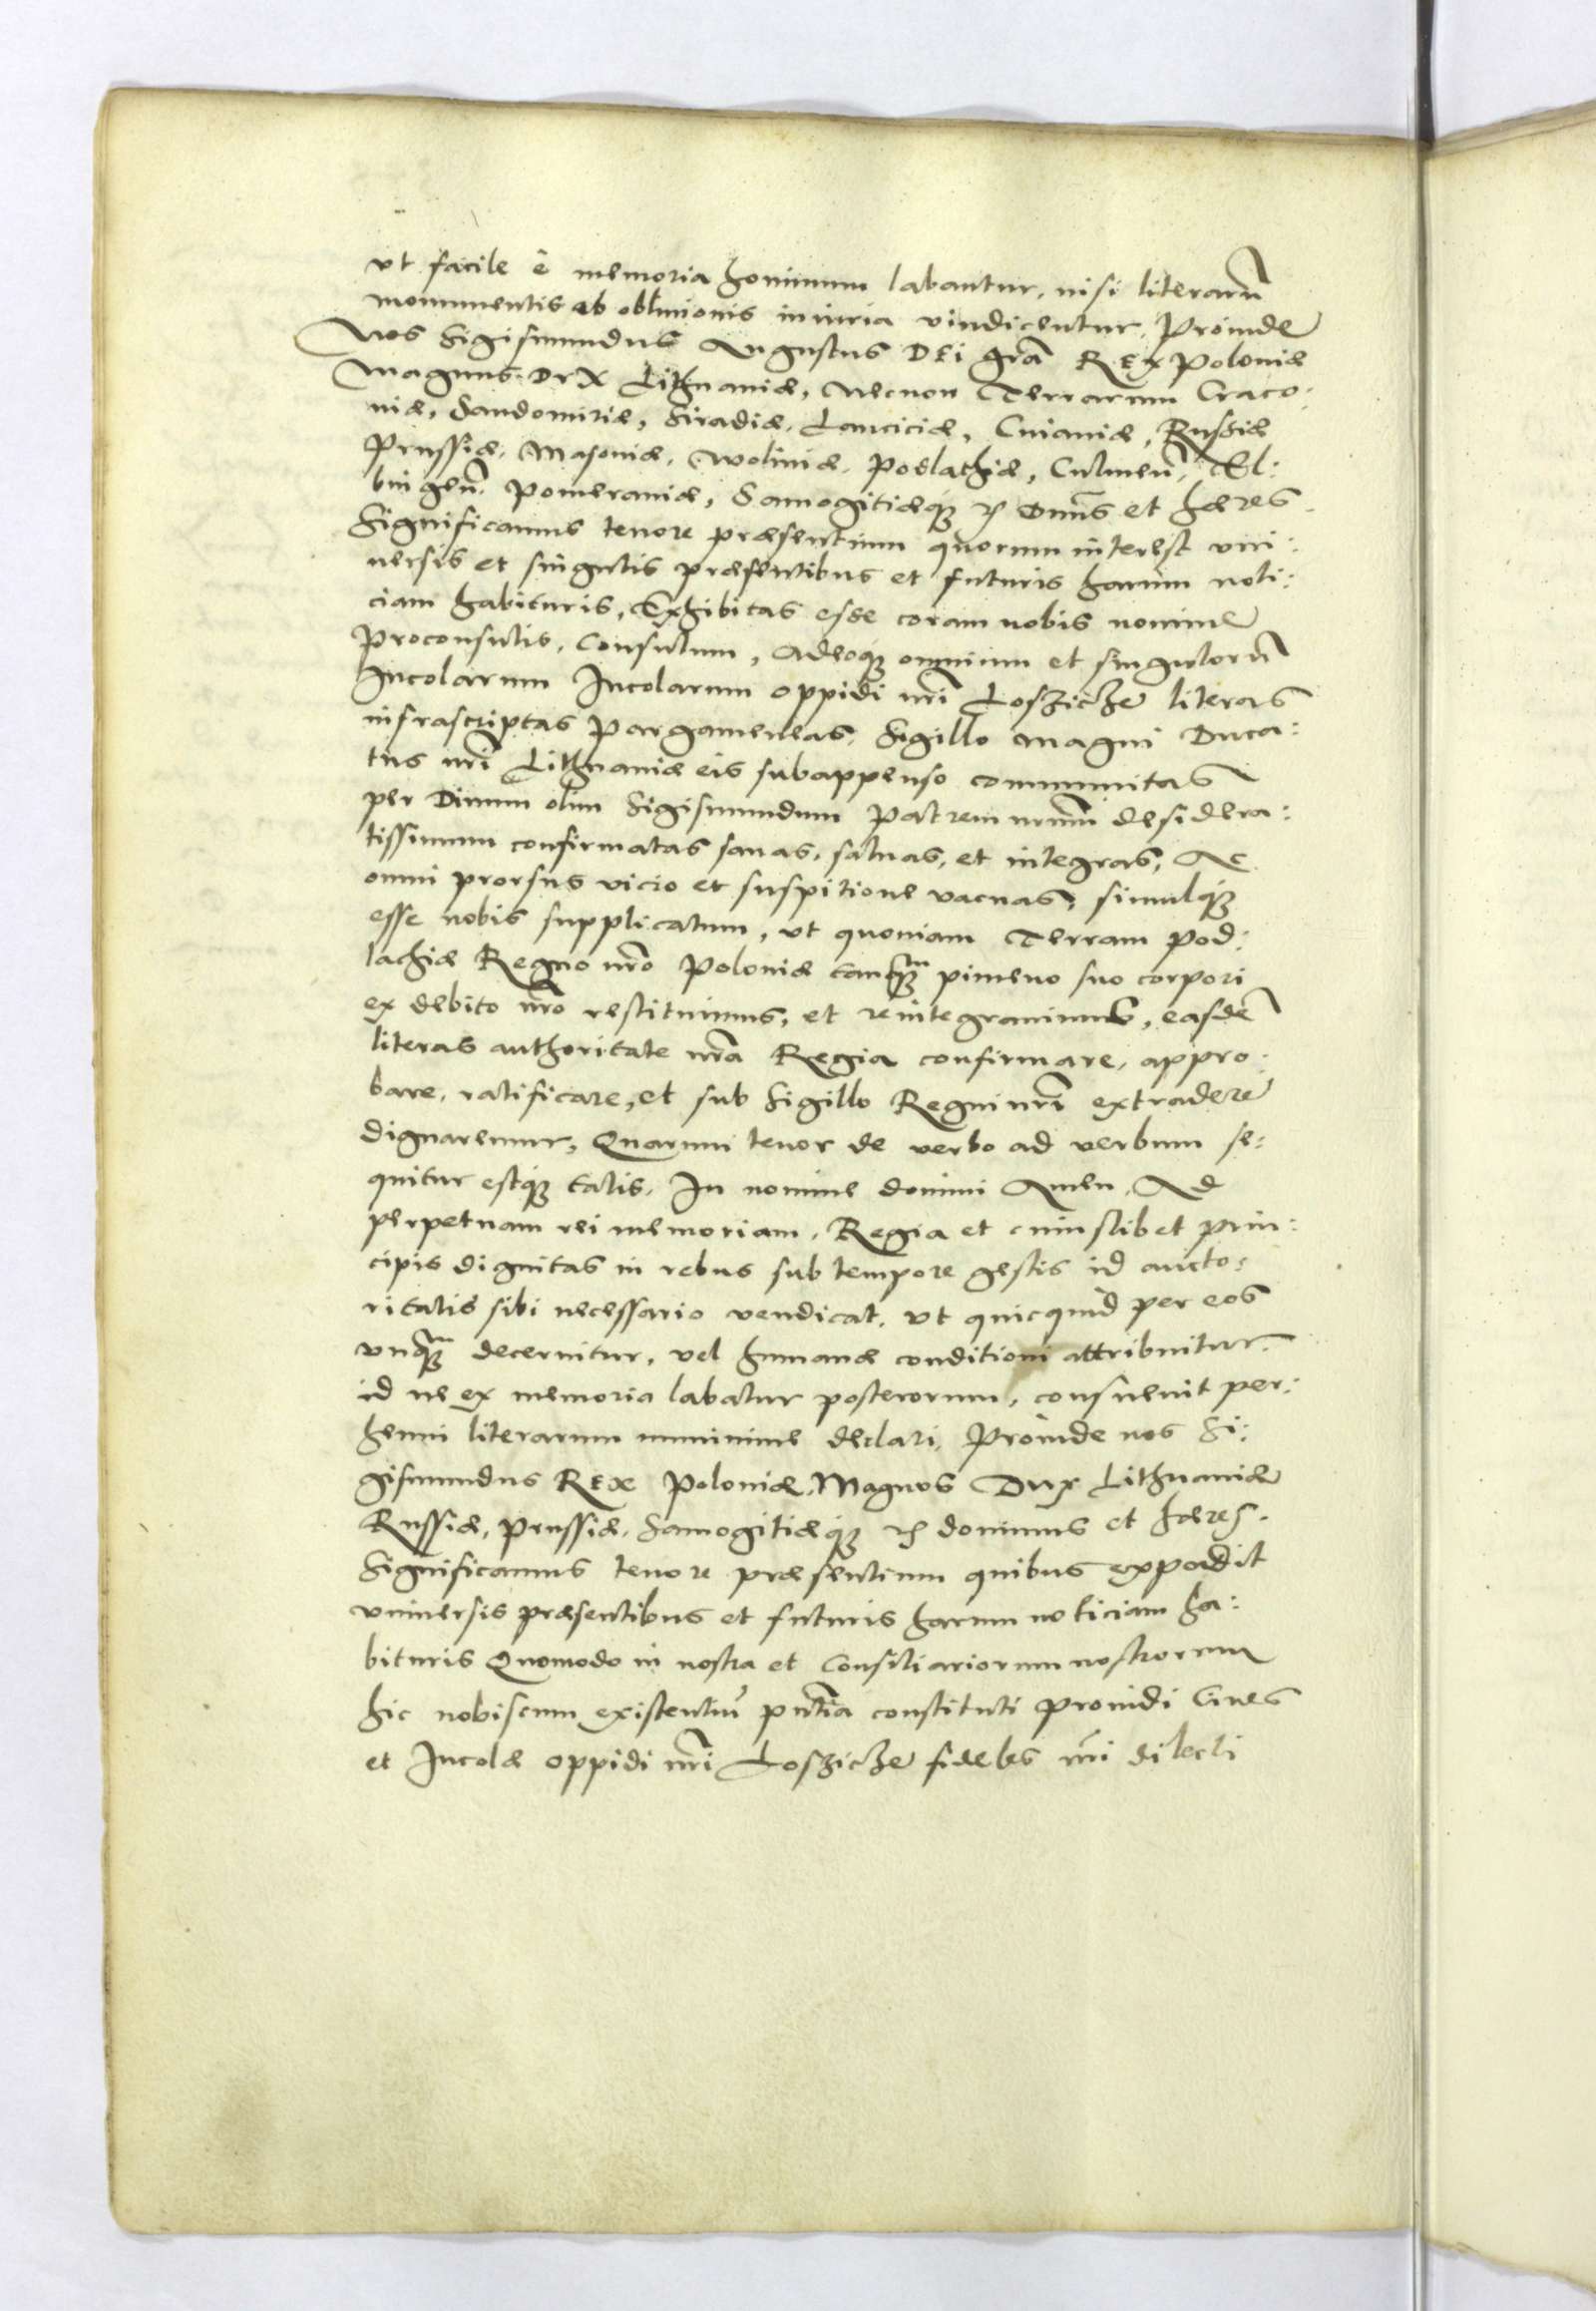 vt facile è memoria hominum labantur, nisi literarũ
monumentis ab obliuionis iniuria vindicentur. Proinde
Nos Sigismundus Augustus DEi gr̃a REx Poloniæ
Magnus Dux Lithuaniæ, Necnon Terrarum Craco:
niæ, Sandomiriæ, Siradiæ, Lanciciæ, Cuiauiæ, Russiæ
Prussiæ, Masouiæ, Woliniæ, Podlachiæ, Culmeñ, El:
bingeñ, Pomeraniæ, Samogitiæqꝫ ꝛc Dnũs et hæres.
Significamus tenore præsentium quorum interest vni:
uersis et singulis præsentibus et futuris harum noti:
ciam habituris, Exhibitas esse coram nobis nomine
Proconsulis, Consulum, Adeoqꝫ omnium et singulorũ
Incolarum Incolarum oppidi nr̃i Loszicze literas
infrascriptas Pargameneas, Sigillo Magni Duca:
tus nr̃i Lithuaniæ eis subappenso communitas
per Diuum olim Sigismundum Patrem nrum̃ desidera:
tissimum confirmatas sanas, saluas, et integras, Ac
omni prorsus vicio et suspitione vacuas, simulqꝫ
esse nobis supplicatum, vt quoniam Terram Pod:
lachiæ Regno nr̃o Poloniæ tanqꝫm pimeuo suo corpori
ex debito nr̃o restituimus, et reintegrauimus, easdẽ
literas authoritate nr̃a Regia confirmare, appro:
bare, ratificare, et sub Sigillo Regni nr̃i extradere
dignaremur, Quarum tenor de verbo ad verbum se:
quitur estqꝫ talis. In nomine domini Amen. Ad
perpetuam rei memoriam. Regia et cuiuslibet prin:
cipis dignitas in rebus sub tempore gestis id aucto:
ritatis sibi necessario vendicat, vt quicquid per eos
vnqꝫm decernitur, vel humanæ conditioni attribuitur
id ne ex memoria labatur posterorum, consueuit per:
henni literarum munimine declari, Proinde nos Si:
gismundus REx Poloniæ, Magnos Dux Lithuaniæ
Russiæ, Prussiæ, Samogitiæqꝫ ꝛc dominus et hæres.
Significamus tenore præsentium quibus expædit
vniuersis præsentibus et futuris harum noticiam ha:
bituris Quomodo in nostra et Consiliariorum nostrorum
hic nobiscum existentiũ pñtia constituti prouidi Ciues
et Incolæ oppidi nr̃i Loszicze fideles nr̃i dilecti